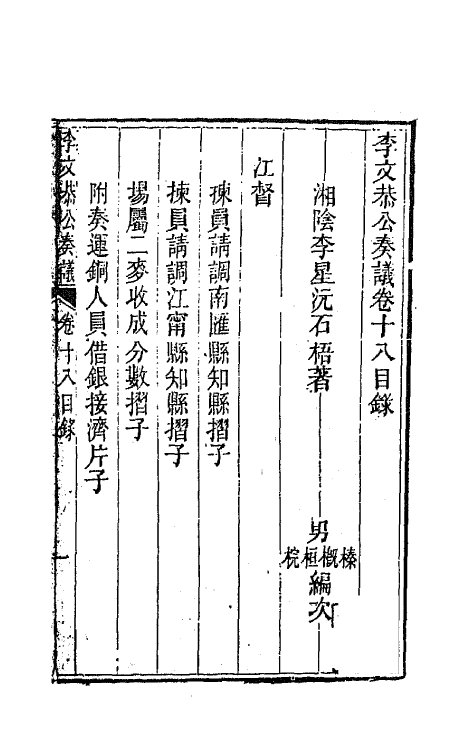 李文恭公奏議卷十八目錄
湘陰李星沅石梧著　男榛概桓梡編次
江督
揀員請調南匯縣知縣摺子
揀員請調江甯縣知縣摺子
場屬二麥收成分數摺子
附奏運銅人員借銀接濟片子
李文恭公奏議　卷十八目錄　一